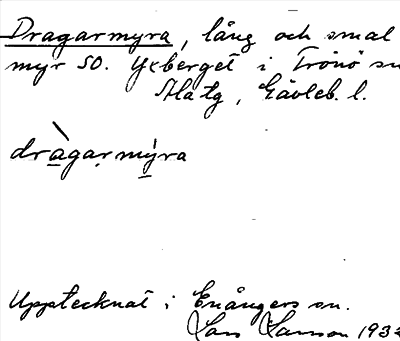 Dragarmyra, lång och smal
myr SO. Ycberget i Trönö sn
Ala tg, Gävleb. l.
dràgarmýra
Upptecknat i Enångers sn.
Lars Larsson 1932